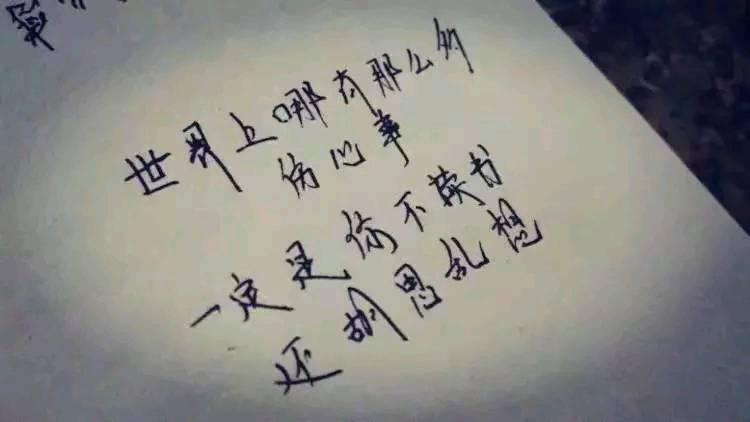 世界上哪有那么多
伤心事
一定是你不读书
还胡思乱想